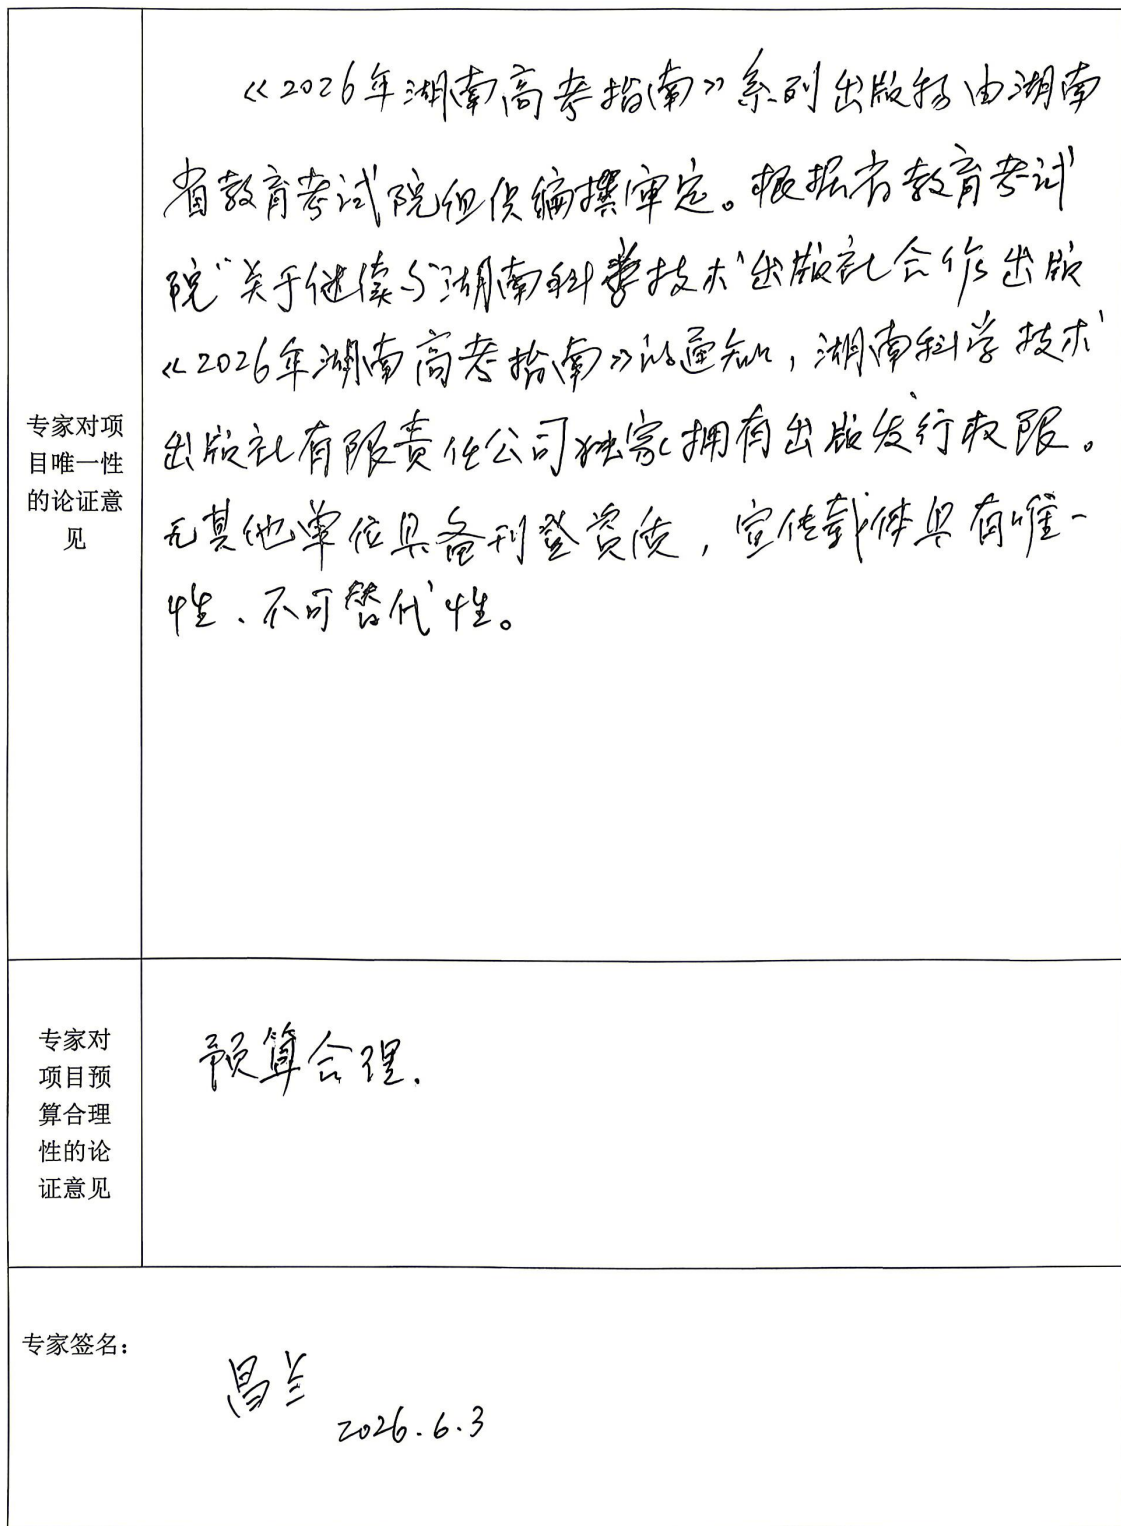 专家对项
目唯一性
的论证意
见
《2026年湖南高考指南》系列出版物由湖南
省教育考试院组织编撰审定。根据省教育考试
院“关于继续与湖南科学技术出版社合作出版
《2026年湖南高考指南》的通知，湖南科学技术
出版社有限责任公司独家拥有出版发行权限。
无其他单位具备刊登资质，宣传载体具有唯一
性、不可替代性。
专家对
项目预
算合理
性的论
证意见
预算合理.
专家签名：
昌兰
2026.6.3